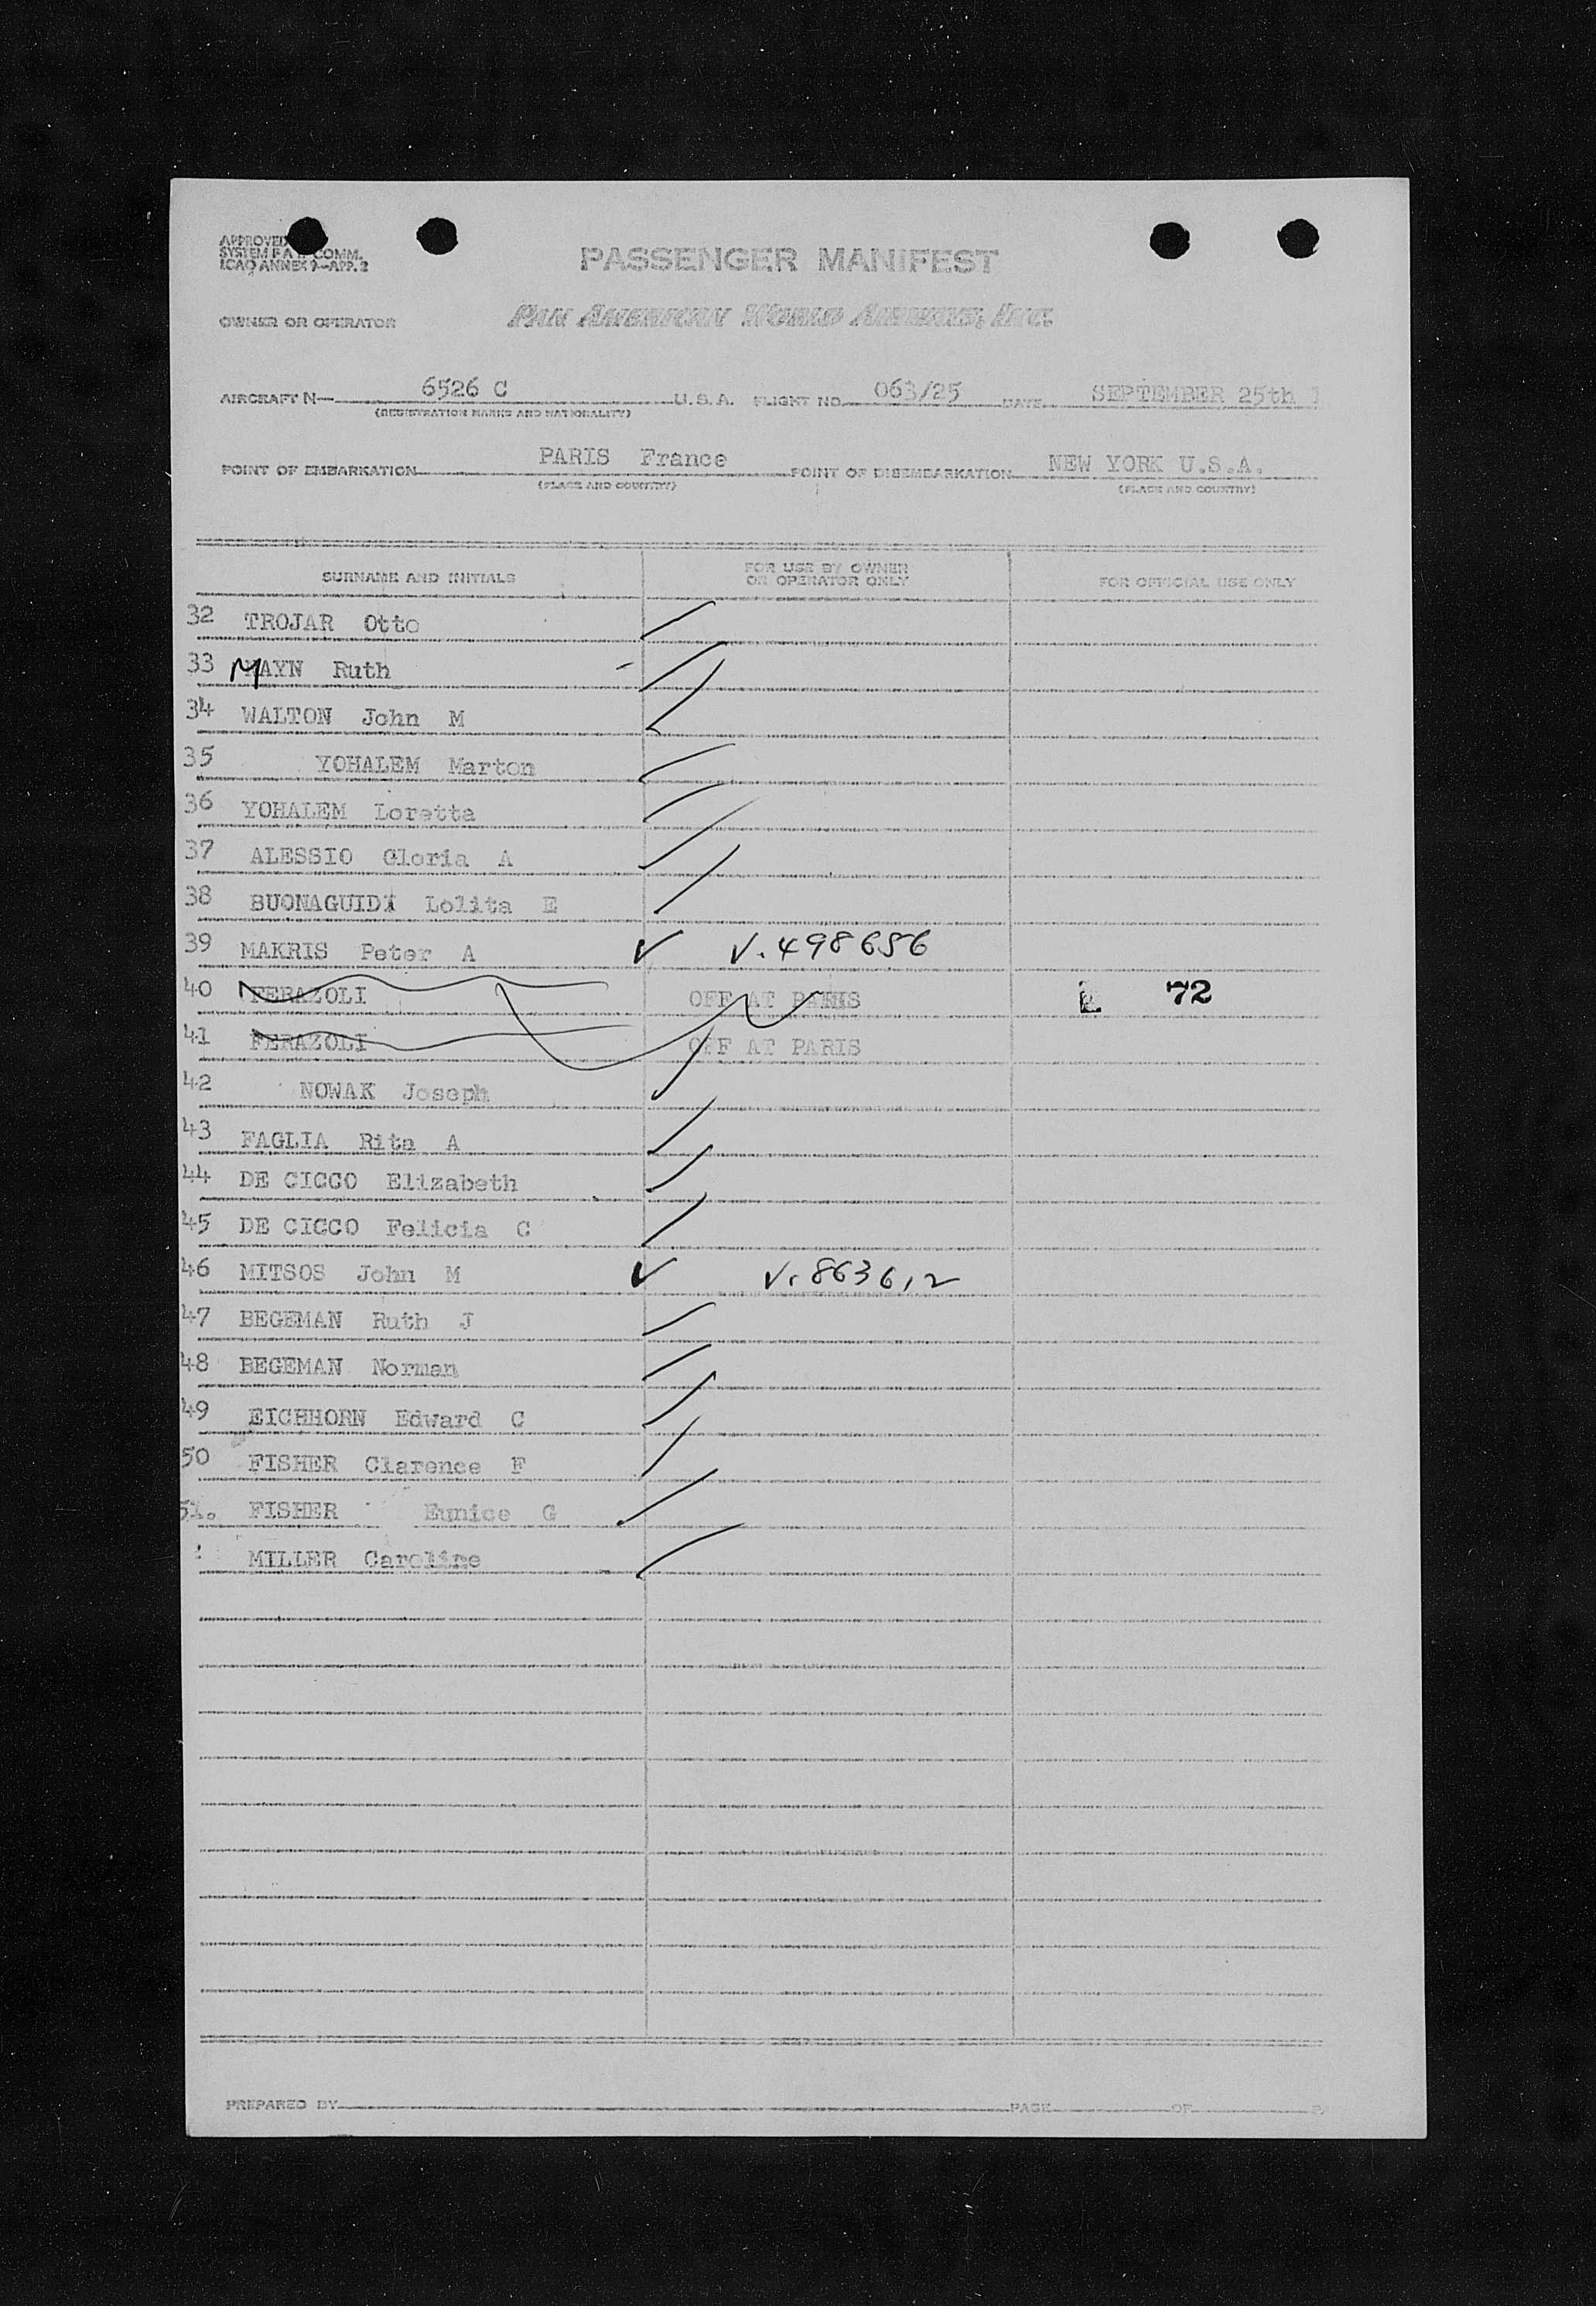 APPROVED
SYSTEM F A L COMM.
ICAO ANNEX 9—APP. 2
PASSENGER MANIFEST
OWNER OR OPERATOR PAN AMERICAN WORLD AIRWAYS, INC.
AIRCRAFT N— 6526 C U.S.A. FLIGHT NO. 063/25 DATE SEPTEMBER 25th 1
(REGISTRATION MARKS AND NATIONALITY)
POINT OF EMBARKATION PARIS France POINT OF DISEMBARKATION NEW YORK U.S.A.
(PLACE AND COUNTRY) (PLACE AND COUNTRY)
SURNAME AND INITIALS FOR USE BY OWNER OR OPERATOR ONLY FOR OFFICIAL USE ONLY
32 TROJAR Otto
33 MAYN Ruth
34 WALTON John M
35 YOHALEM Marton
36 YOHALEM Loretta
37 ALESSIO Gloria A
38 BUONAGUIDI Lolita E
39 MAKRIS Peter A V. 498656
40 FERAZOLI OFF AT PARIS 72
41 FERAZOLI OFF AT PARIS
42 NOWAK Joseph
43 FAGLIA Rita A
44 DE CICCO Elizabeth
45 DE CICCO Felicia C
46 MITSOS John M V. 863612
47 BEGEMAN Ruth J
48 BEGEMAN Norman
49 EICHHORN Edward C
50 FISHER Clarence F
51. FISHER Eunice G
MILLER Caroline
PREPARED BY PAGE OF